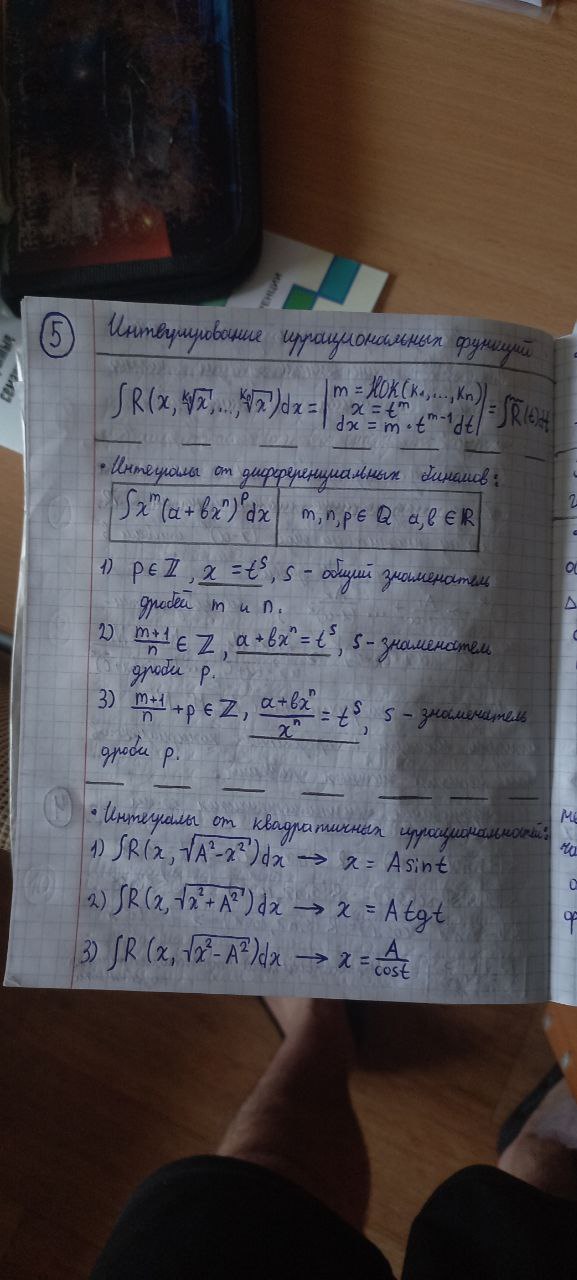 РЕНЦИИ
5
Интегрирование иррациональных функций
∫R(x, ᵏ¹√x,..., ᵏⁿ√x)dx = | m = НОК(k₁,...,kₙ) x = tᵐ dx = m·tᵐ⁻¹dt | = ∫R̃(t)dt
• Интегралы от дифференциальных биномов:
∫xᵐ(a+bxⁿ)ᵖdx m,n,p ∈ ℚ a,b ∈ ℝ
1) p∈ℤ, x = tˢ, s – общий знаменатель
дробей m и n.
2) (m+1)/n ∈ ℤ, a+bxⁿ = tˢ, s – знаменател
дроби p.
3) (m+1)/n + p ∈ ℤ, (a+bxⁿ)/xⁿ = tˢ, s – знаменатель
дроби p.
• Интегралы от квадратичных иррациональностей:
1) ∫R(x, √(A²-x²))dx → x = Asint
2) ∫R(x, √(x²+A²))dx → x = Atgt
3) ∫R(x, √(x²-A²))dx → x = A/cost